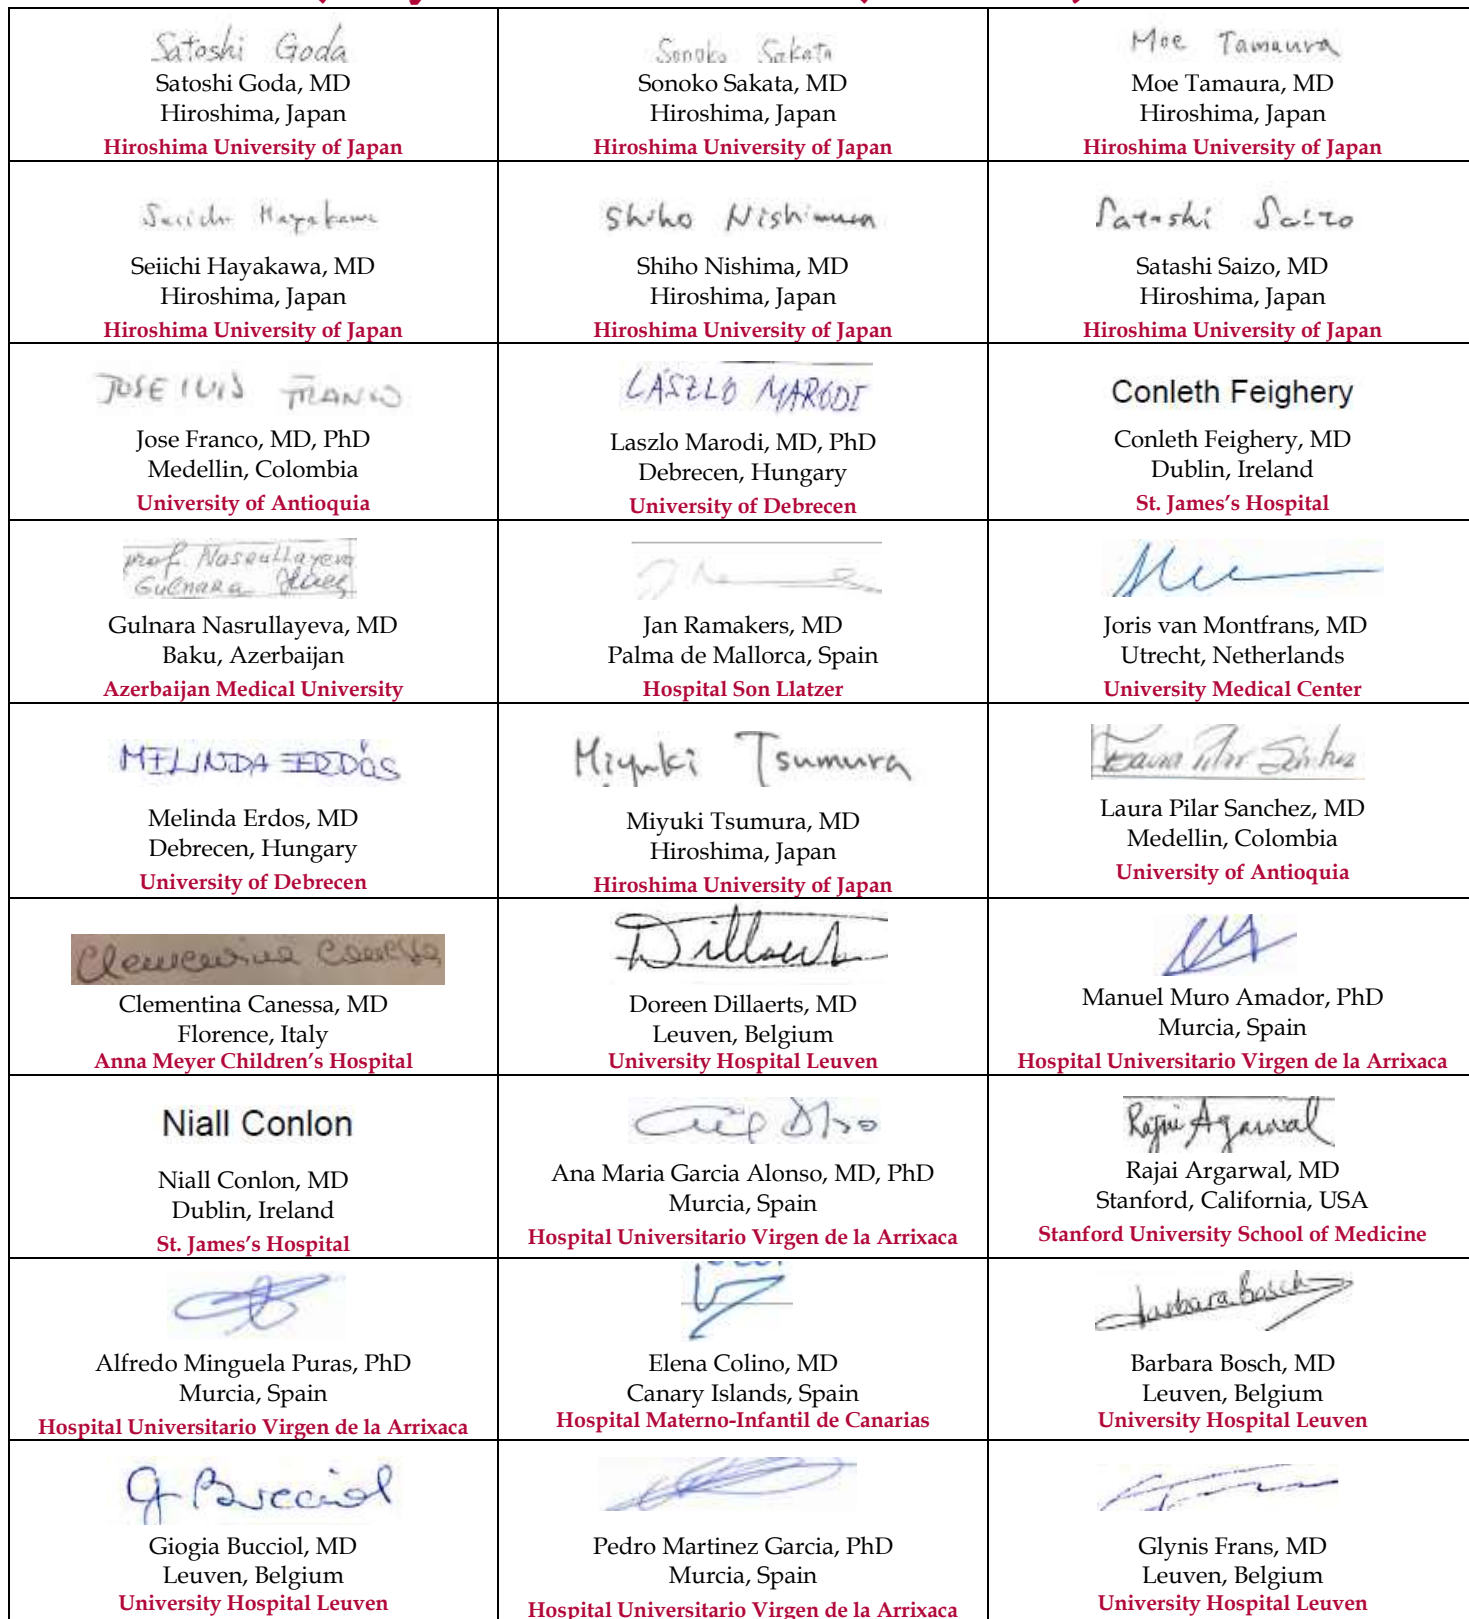 Satoshi Goda
Satoshi Goda, MD
Hiroshima, Japan
Hiroshima University of Japan
Sonoko Sakata
Sonoko Sakata, MD
Hiroshima, Japan
Hiroshima University of Japan
Moe Tamaura
Moe Tamaura, MD
Hiroshima, Japan
Hiroshima University of Japan
Seiichi Hayakawa
Seiichi Hayakawa, MD
Hiroshima, Japan
Hiroshima University of Japan
Shiho Nishimura
Shiho Nishima, MD
Hiroshima, Japan
Hiroshima University of Japan
Satoshi Saizo
Satashi Saizo, MD
Hiroshima, Japan
Hiroshima University of Japan
JOSE LUIS FRANCO
Jose Franco, MD, PhD
Medellin, Colombia
University of Antioquia
LÁSZLÓ MARÓDI
Laszlo Marodi, MD, PhD
Debrecen, Hungary
University of Debrecen
Conleth Feighery
Conleth Feighery, MD
Dublin, Ireland
St. James’s Hospital
prof. Nasrullayeva
Gulnara
Gulnara Nasrullayeva, MD
Baku, Azerbaijan
Azerbaijan Medical University
Jan Ramakers, MD
Palma de Mallorca, Spain
Hospital Son Llatzer
Joris van Montfrans, MD
Utrecht, Netherlands
University Medical Center
MELINDA ERDŐS
Melinda Erdos, MD
Debrecen, Hungary
University of Debrecen
Miyuki Tsumura
Miyuki Tsumura, MD
Hiroshima, Japan
Hiroshima University of Japan
Laura Pilar Sánchez
Laura Pilar Sanchez, MD
Medellin, Colombia
University of Antioquia
Clementina Canessa
Clementina Canessa, MD
Florence, Italy
Anna Meyer Children’s Hospital
Dillaerts
Doreen Dillaerts, MD
Leuven, Belgium
University Hospital Leuven
Manuel Muro Amador, PhD
Murcia, Spain
Hospital Universitario Virgen de la Arrixaca
Niall Conlon
Niall Conlon, MD
Dublin, Ireland
St. James’s Hospital
Ana Maria Garcia Alonso, MD, PhD
Murcia, Spain
Hospital Universitario Virgen de la Arrixaca
Rajni Agarwal
Rajai Argarwal, MD
Stanford, California, USA
Stanford University School of Medicine
Alfredo Minguela Puras, PhD
Murcia, Spain
Hospital Universitario Virgen de la Arrixaca
Elena Colino, MD
Canary Islands, Spain
Hospital Materno-Infantil de Canarias
Barbara Bosch
Barbara Bosch, MD
Leuven, Belgium
University Hospital Leuven
G Bucciol
Giogia Bucciol, MD
Leuven, Belgium
University Hospital Leuven
Pedro Martinez Garcia, PhD
Murcia, Spain
Hospital Universitario Virgen de la Arrixaca
Glynis Frans, MD
Leuven, Belgium
University Hospital Leuven